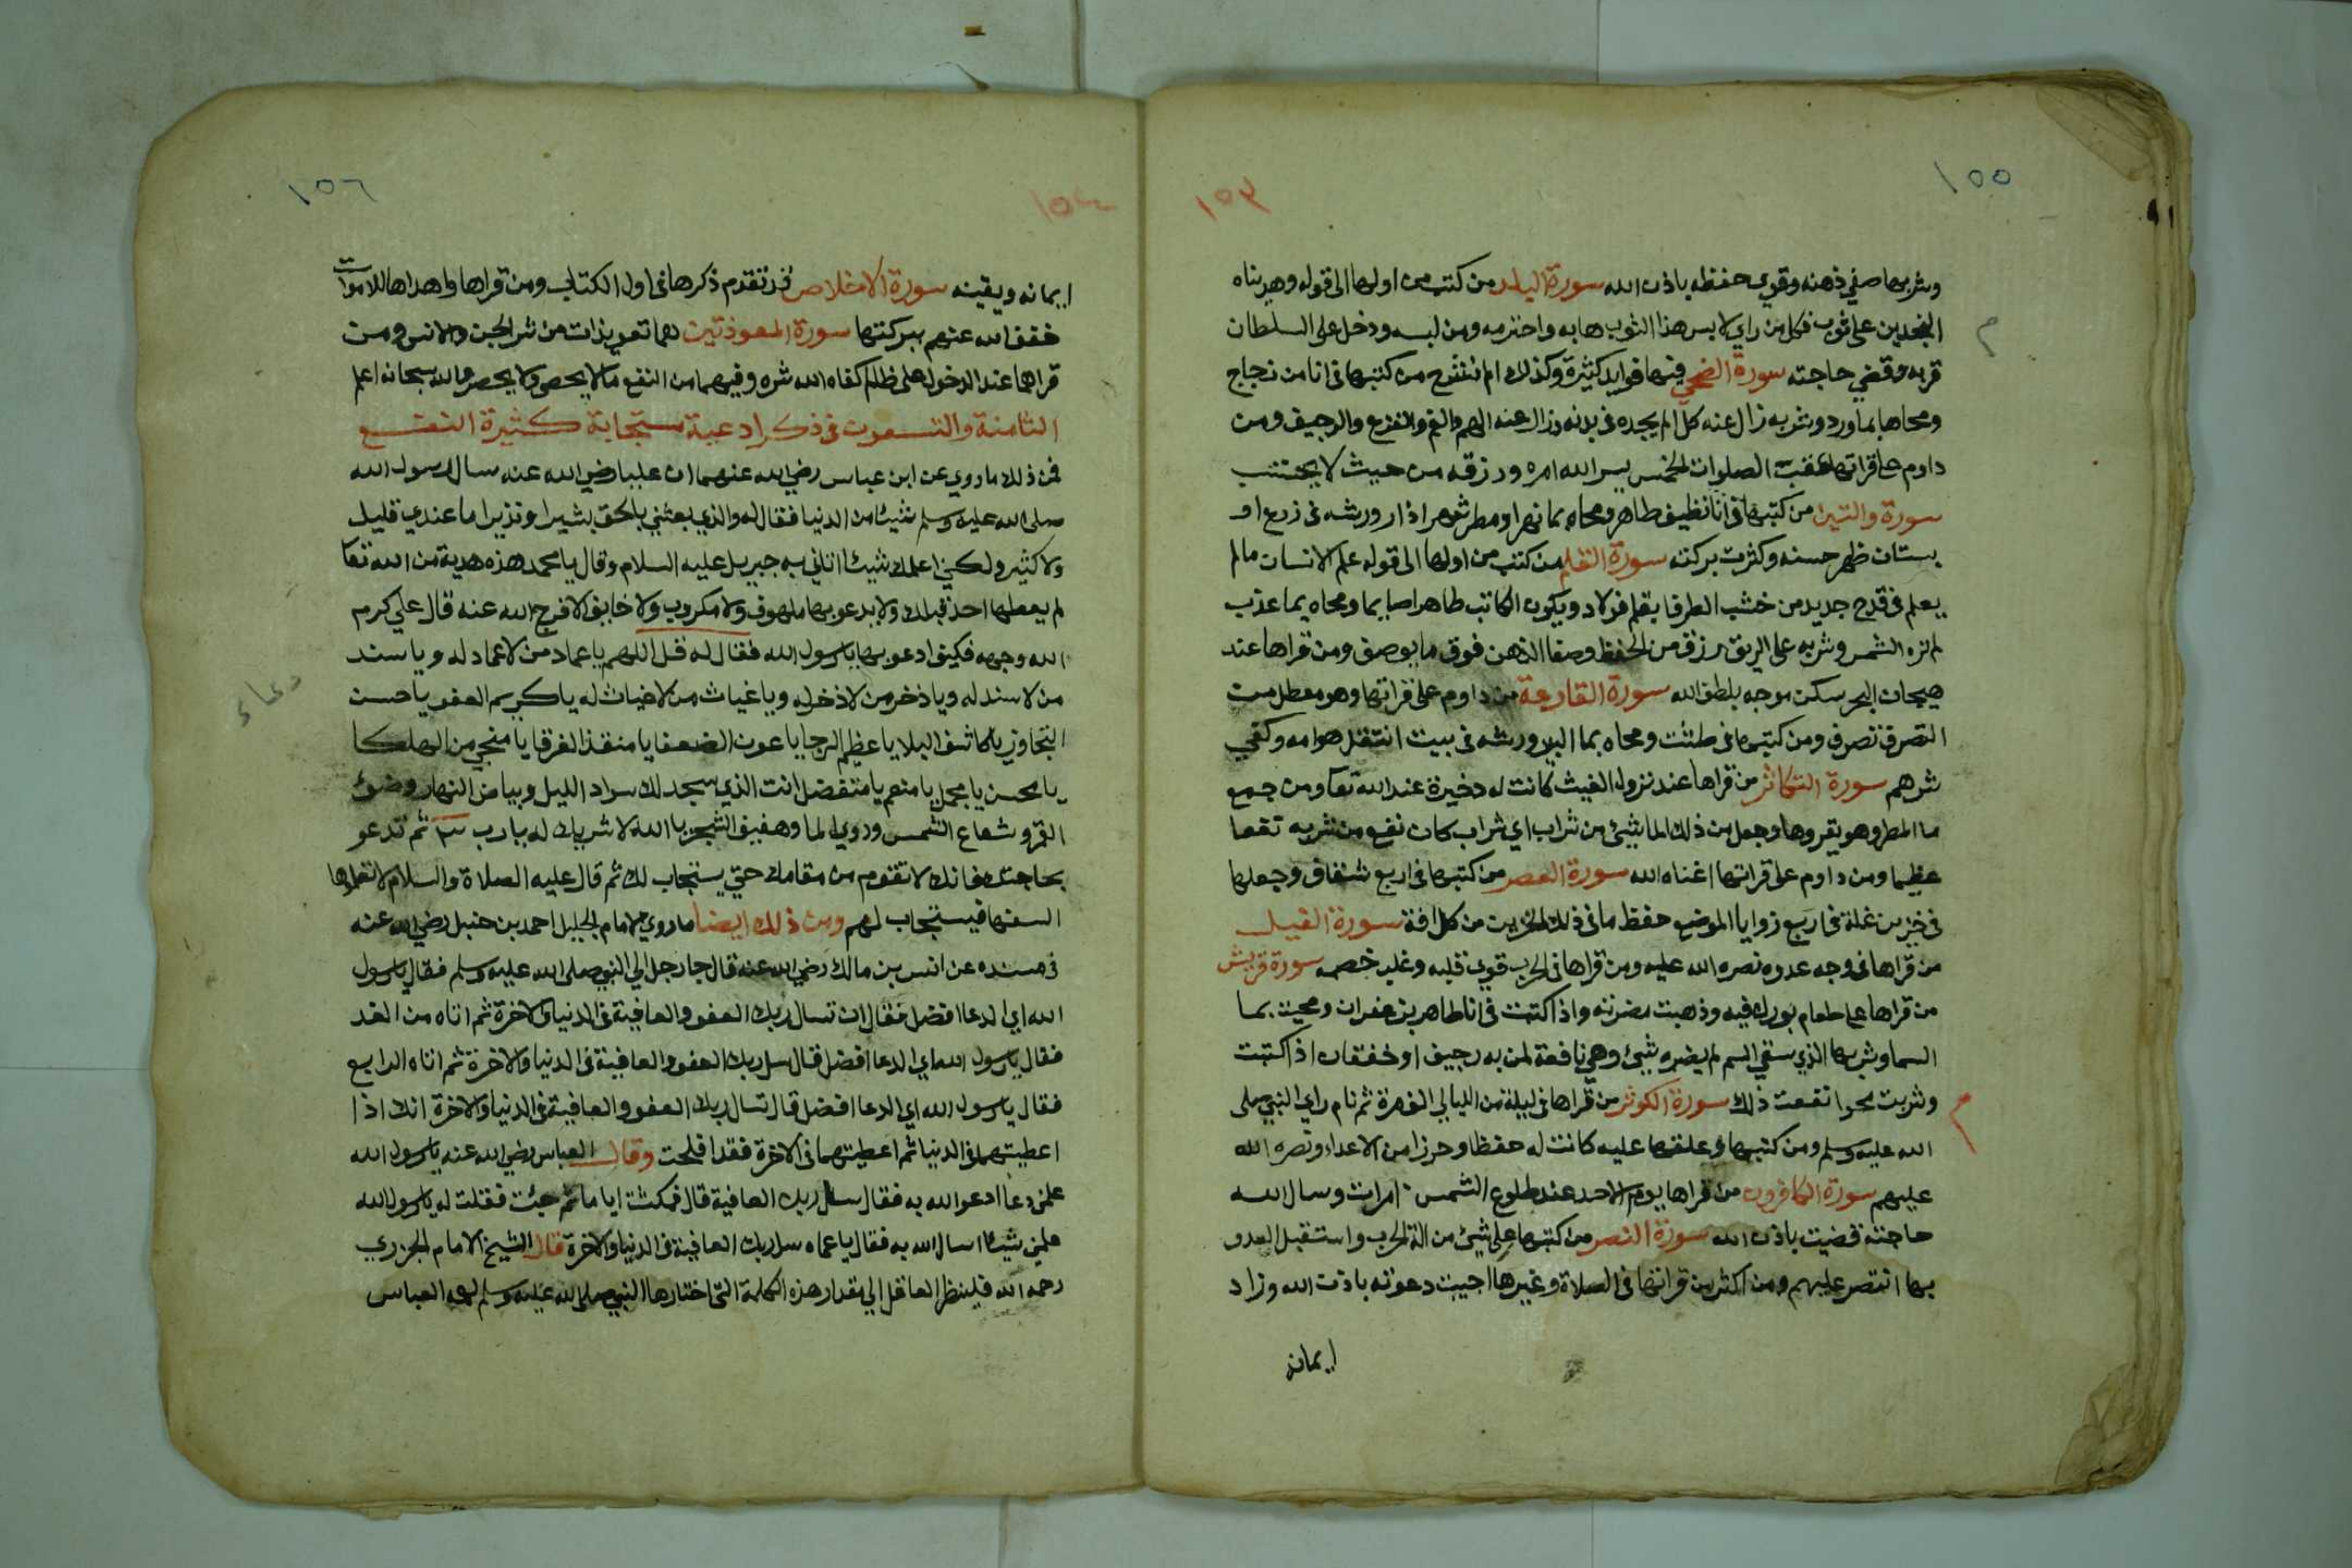 ١٥٥
١٥٣
وشربها صفي ذهنه وقوي حفظه باذن الله سورة البلد من كتب من اولها الى قوله وهديناه
النجدين على ثوب فكل من راي لابس هذا الثوب هابه واحترمه ومن لبسه ودخل على السلطان
قربه وقضي حاجته سورة الضحي فيها فوايد كثيرة وكذلك الم نشرح من كتبها في انا من زجاج
ومحاها بماورد وشربه زال عنه كل الم يجده في بدنه وزال عنه الهم والغم والفزع والرجيف ومن
داوم على قراتها عقب الصلوات الخمس يسر الله امره ورزقه من حيث لا يحتسب
سورة والتين من كتبها في انا نظيف طاهر ومحاه بما نهر او مطر شهر اذار ورشه في زرع او
بستان ظهر حسنه وكثرت بركته سورة القلم من كتب من اولها الى قوله علم الانسان مالم
يعلم في قدح جديد من خشب الطرفا بقلم فولاد ويكون الكاتب طاهرا صايما ومحاه بما عذب
لم تره الشمس وشربه على الريق رزق من الحفظ وصفا الذهن فوق ما يوصف ومن قراها عند
هيجان البحر سكن موجه بلطف الله سورة القارعة من داوم على قراتها وهو معطل من
التصرف تصرف ومن كتبها في طشت ومحاه بما البير ورشه في بيت انتقل هوامه وكفي
شرهم سورة التكاثر من قراها عند نزول الغيث كانت له دخيرة عند الله تعا ومن جمع
ما المطر وهو يقروها وجعل من ذلك الما بشئ من شراب اي شراب كان نفع من شربه نفعا
عظيما ومن داوم على قراتها اغناه الله سورة العصر من كتبها في اربع شقاف وجعلها
في خزين غلة في اربع زوايا الموضع حفظ ما في ذلك الخزين من كل افة سورة الفيل
من قراها في وجه عدوه نصره الله عليه ومن قراها في الحرب قوي قلبه وغلب خصمه سورة قريش
من قراها على طعام بورك فيه وذهبت مضرته واذا كتبت في انا طاهر بزعفران ومحيت بما
السما وشربها الذي سقي السم لم يضره شئ وهي نافعة لمن به رجيف او خفقان اذا كتبت
وشربت محوا نفعت ذلك سورة الكوثر من قراها في ليلة من الليالي ثم نام راي النبي صلى
الله عليه وسلم ومن كتبها وعلقها عليه كانت له حفظا وحرزا من الاعداء ونصره الله
عليهم سورة الكافرون من قراها يوم الاحد عند طلوع الشمس ١٠ مرات وسال الله
حاجته قضيت باذن الله سورة النصر من كتبها على شئ من الة الحرب واستقبل العدو
بها انتصر عليهم ومن اكثر من قراتها في الصلاة وغيرها اجيبت دعوته باذن الله وزاد
ايمانه
١٥٦
١٥٤
ايمانه ويقينه سورة الاخلاص قد تقدم ذكرها في اول الكتاب ومن قراها واهداها للاموات
خفف الله عنهم ببركتها سورة المعوذتين هما تعويذات من شر الجن والانس ومن
قراهما عند الدخول على ظالم كفاه الله شره وفيهما من النفع ما لا يحصى ولا يحصر والله سبحانه اعلم
الثامنة والتسعون في ذكر ادعية مستجابة كثيرة النفع
فمن ذلك ما روي عن ابن عباس رضي الله عنهما ان عليا رضي الله عنه سال رسول الله
صلى الله عليه وسلم شيئا من الدنيا فقال له والذي بعثني بالحق بشيرا ونذيرا ما عندي قليل
ولا كثير ولكني اعلمك شيئا اتاني به جبريل عليه السلام وقال يا محمد هذه هدية من الله تعا
لم يعطها احد قبلك ولا يدعو بها ملهوف ولا مكروب ولا خايف الا فرج الله عنه قال علي كرم
الله وجهه فكيف ادعو بها يا رسول الله فقال له قل اللهم يا عماد من لا عماد له ويا سند
من لا سند له ويا ذخر من لا ذخر له ويا غياث من لا غياث له يا كريم العفو يا حسن
دعاء
التجاوز يا كاشف البلا يا عظيم الرجا يا عون الضعفا يا منقذ الغرقا يا منجي من الهلكا
يا محسن يا مجمل يا منعم يا متفضل انت الذي سجد لك سواد الليل وبياض النهار وضوئ
القمر وشعاع الشمس ودوي الما وحفيف الشجر يا الله لا شريك له يا رب ٣ ثم تدعو
بحاجتك فانك لا تقوم من مقامك حتي يستجاب لك ثم قال عليه الصلاة والسلام لا تعلموها
السفها فيستجاب لهم ومن ذلك ايضا ما روي الامام الجليل احمد بن حنبل رضي الله عنه
في مسنده عن انس بن مالك رضي الله عنه قال جا رجل الي النبي صلى الله عليه وسلم فقال يا رسول
الله اي الدعا افضل فقال ان تسال ربك العفو والعافية في الدنيا والاخرة ثم اتاه من الغد
فقال يا رسول الله اي الدعا افضل قال سل ربك العفو والعافية في الدنيا والاخرة ثم اتاه الرابع
فقال يا رسول الله اي الدعا افضل قال تسال ربك العفو والعافية في الدنيا والاخرة انك اذا
اعطيتهما في الدنيا ثم اعطيتهما في الاخرة فقد افلحت وقال العباس رضي الله عنه يا رسول الله
علمني دعا ادعو الله به فقال سل ربك العافية قال فمكثت اياما ثم جئت فقلت له يا رسول الله
علمني شيئا اسال الله به فقال يا عماه سل ربك العافية في الدنيا والاخرة قال الشيخ الامام الجزري
رحمه الله فلينظر العاقل الي مقدار هذه الكلمة التي اختارها النبي صلى الله عليه وسلم لعمه العباس